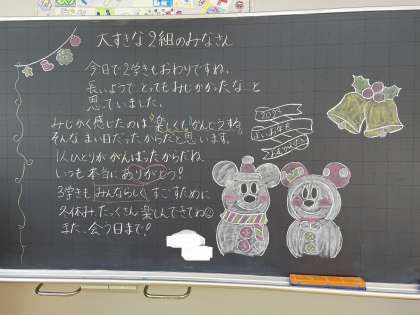 大すきな2組のみなさん
今日で2学きもおわりですね。
長いようでとってもみじかかったなと
思っていました。
みじかく感じたのは楽しくてかんどうする
そんなまい日だったからだと思います。
1人ひとりががんばったからだね。
いつも本当にありがとう!
3学きもみんならしくすごすために
冬休みたっくさん楽しんできてね
また、会う日まで!
2025
よいお年を